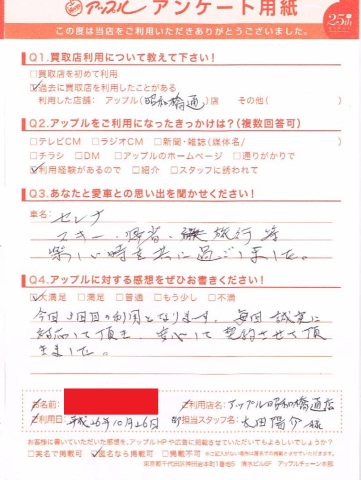 アップル アンケート用紙
25th
この度は当店をご利用いただきありがとうございました。
Q1.買取店利用について教えて下さい!
□買取店を初めて利用
☑過去に買取店を利用したことがある
利用した店舗: アップル(昭和橋通)店 その他( )
Q2.アップルをご利用になったきっかけは?(複数回答可)
□テレビCM □ラジオCM □新聞・雑誌(媒体名/ )
□チラシ □DM □アップルのホームページ □通りがかりで
☑利用経験があるので □紹介 □スタッフに誘われて
Q3.あなたと愛車との思い出を聞かせください!
車名:
セレナ
スキー・帰省・旅行等
楽しい時を共に過ごしました。
Q4.アップルに対する感想をぜひお書きください!
☑大満足 □満足 □普通 □もう少し □不満
今回3回目の利用となります。毎回誠実に
対応して頂き、安心して契約させて頂
きました。
お名前:
ご利用店名: アップル昭和橋通店
ご利用日: 平成26年10月26日
担当スタッフ名: 太田陽介 様
お客様に書いていただいた感想を、アップルHPや広告に掲載させていただいてもよろしいでしょうか?
□実名で掲載可 ☑匿名なら掲載可 □掲載不可 ※ご記入がない場合は匿名での掲載とさせていただきます。
東京都千代田区神田紺屋町1番地5 清水ビル6F アップルチェーン本部